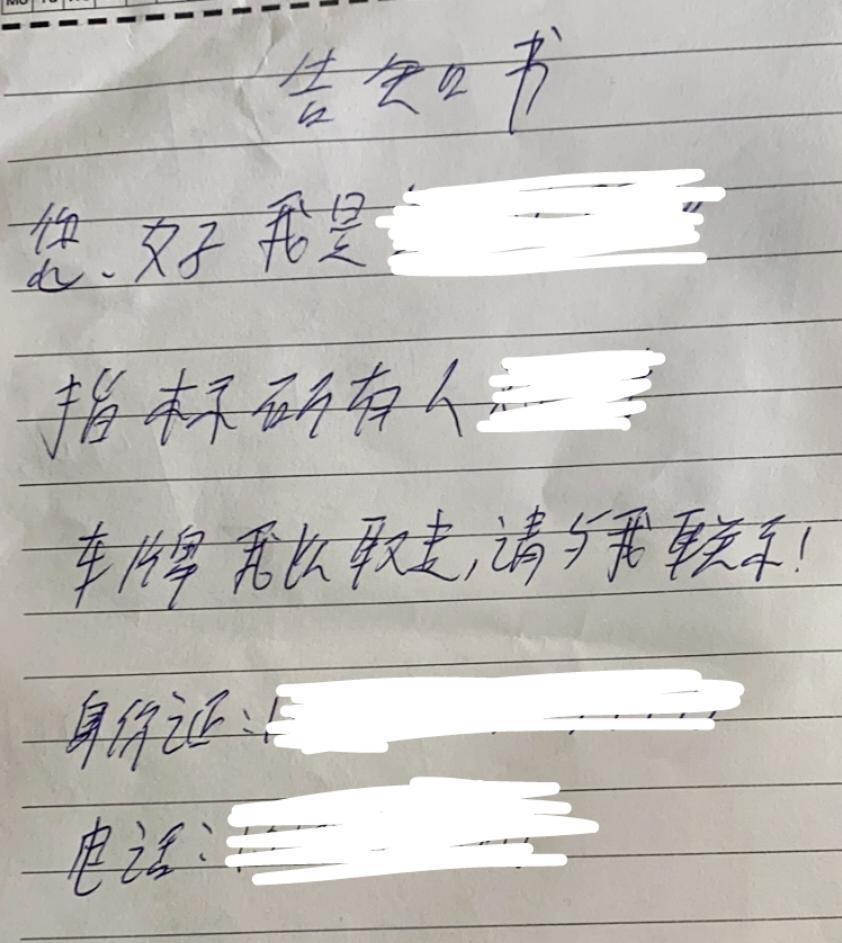 告知书
您、好 我是
指标所有人
车牌 我以取走,请与我联系!
身份证:
电话: